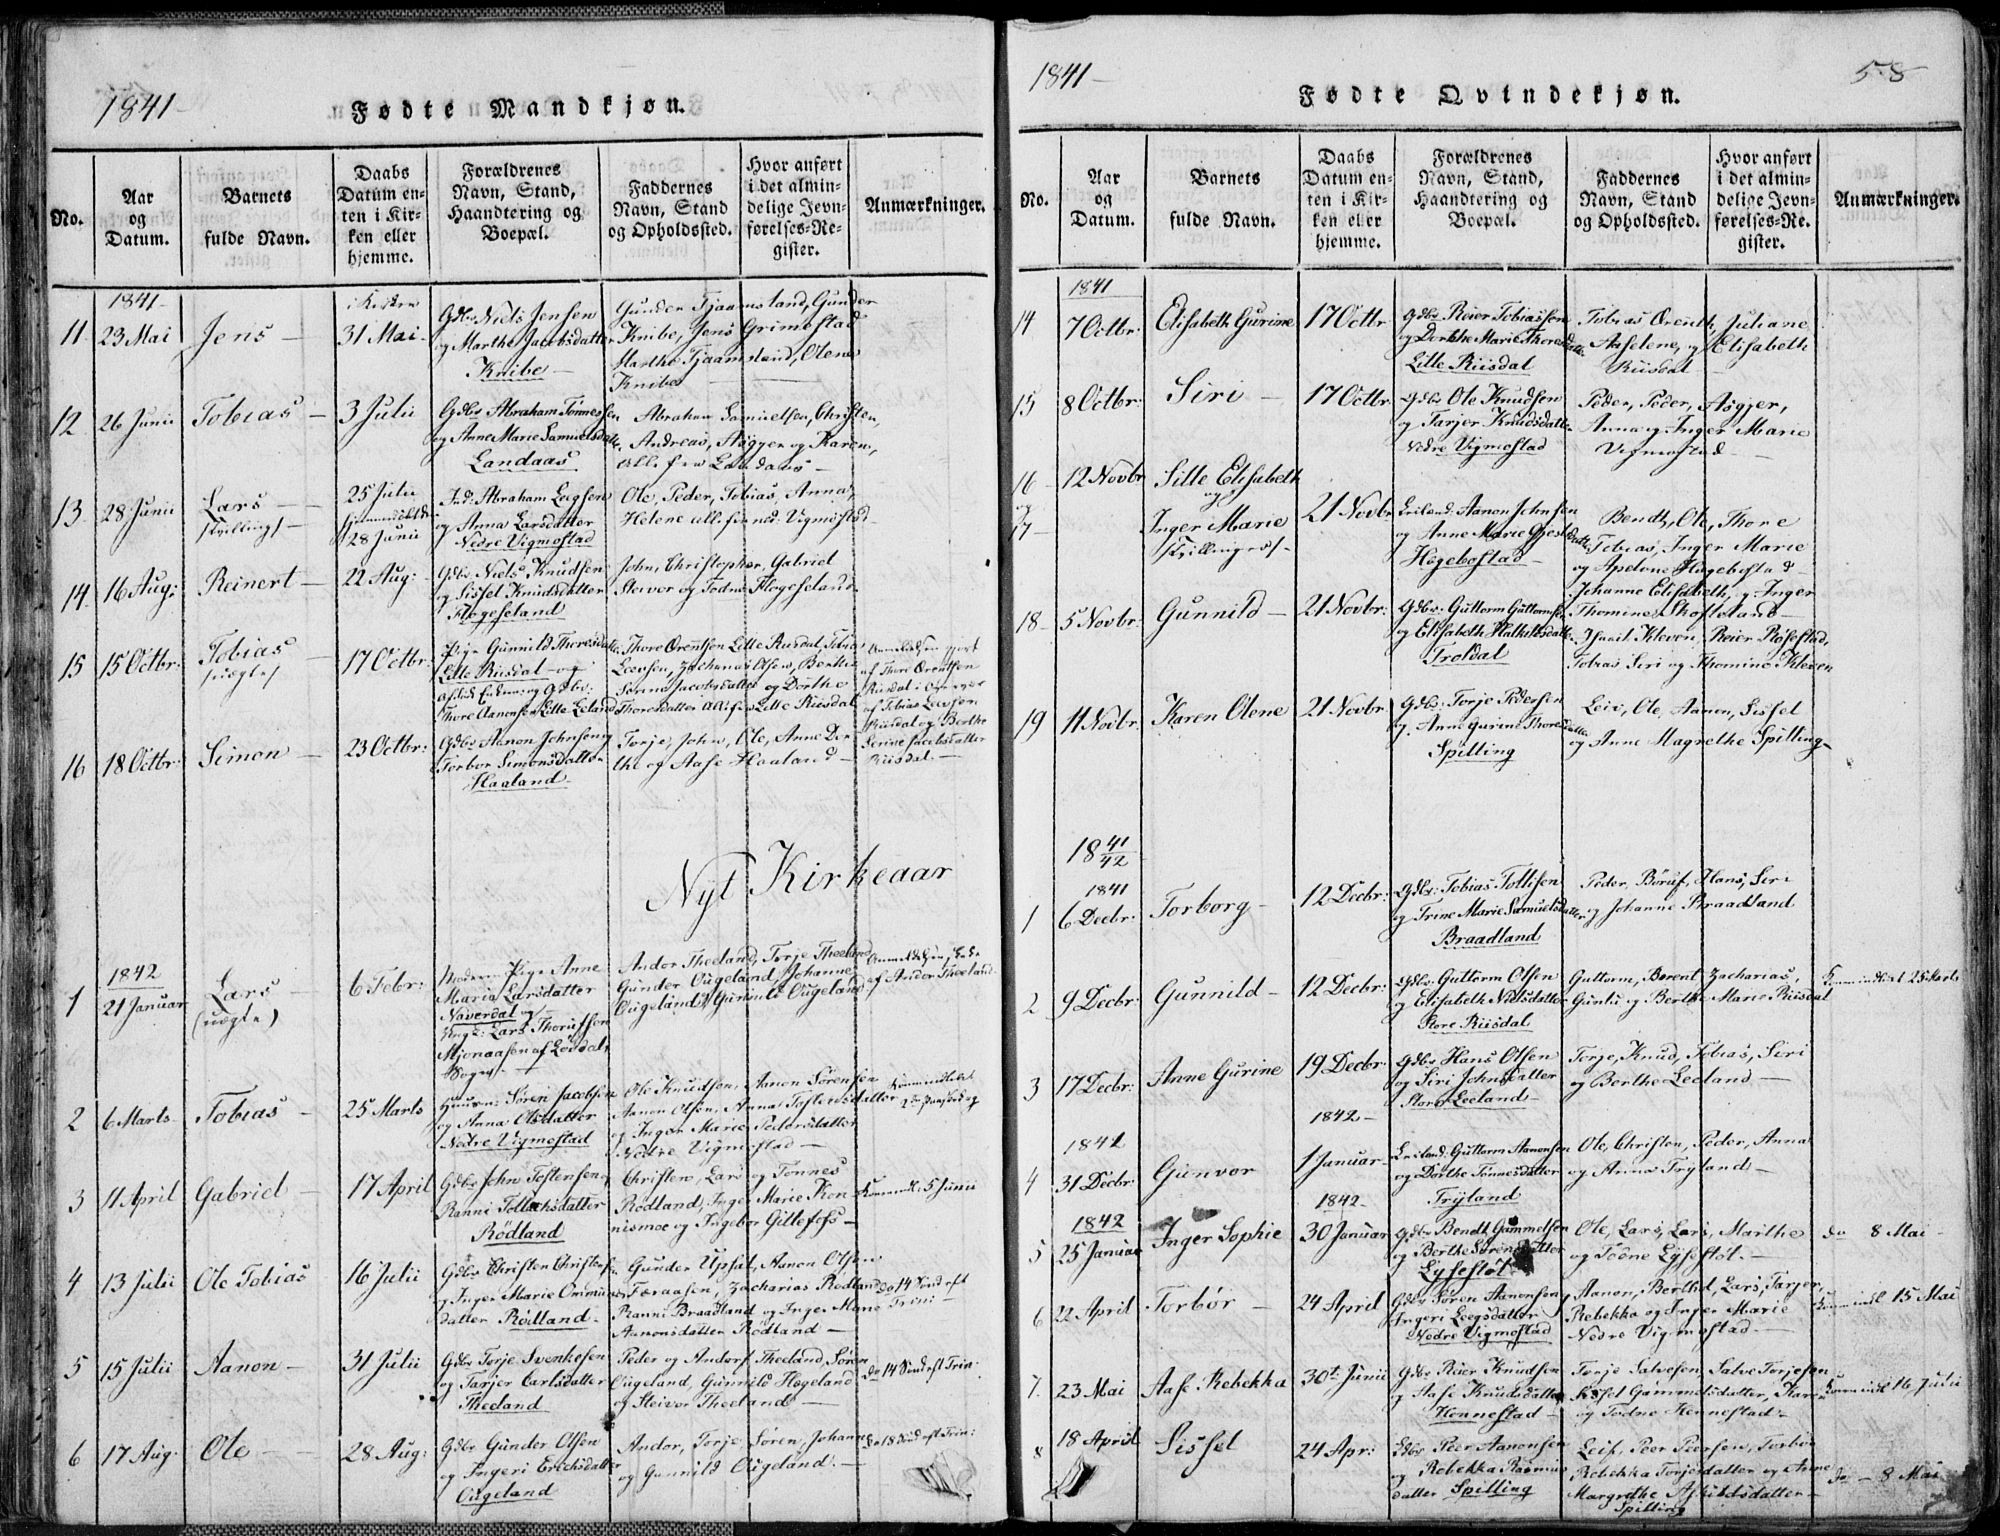 1841
Fødte Mandkjøn.
No.
Aar
og
Datum.
Barnets
fulde Navn.
Daabs
Datum en-
ten i Kir-
ken eller
hjemme.
Forældrenes
Navn, Stand,
Haandtering og
Boepæl.
Faddernes
Navn, Stand
og Opholdssted.
Hvor anført
i det almin-
delige Jevn-
førelses-Re-
gister.
Anmærkninger.
1841
11 23 Mai Jens 31 Mai
Gdbr Niels Jensen
og Marthe Jacobsdatter
Knibe
Gunder Tjaamsland, Gunder
Knibe, Jens Grimestad
Marthe Tjaamsland, Olene
Knibe
12 26 Junii Tobias 3 Julii
Gdbr Abraham Tønnesen
og Anne Marie Samuelsdatter
Landaas
Abraham Samuelsen, Christen,
Andreas, Asgjer og Karen,
alle fra Landaas
13 28 Junii Lars
25 Julii
hjemmedøbt d:
28 Junii
Ind: Abraham Leegsen
og Anna Larsdatter
Nedre Vigmostad
Ole, Peder, Tobias, Anna,
Helene alle fra ned: Vigmostad
14 16 Aug: Reinert 22 Aug:
Gdbr Niels Knudsen
og Sissel Knudsdatter
Hogeseland
John, Christopher, Gabriel
Steivor og Todne Hogeseland
15 15 Octbr: Tobias
(uægte) 17 Octbr:
Pige Gunnild Thoresdatter
Lille Riisdal og
Thore Aanonsen Lille Leland
Thore Orentsen Lille Riisdal, Tobias
Leevsen, Zacharias Olsen, Berthe
Serina Jacobsdatter og Dorthe
Thoresdatter alle fra Lille Riisdal
af Thore Orentsen
Riisdal
af Tobias Leevsen
Riisdal og Berthe
Serine Jacobsdatter
Riisdal
16 18 Octbr: Simon 23 Octbr:
Gdbr Aanon Johnsen og
Torbor Simonsdatter
Haaland
Torje, John, Ole, Anne Dor-
the og Aase Haaland
Nyt Kirkeaar
1842
1 21 Januar Lars
(uægte) 6 Febr:
Moderen Pige Anne
Maria Larsdatter
Naverdal og
Ungk: Lars Thorufsen
Mjonaasen af Løvdals
Sogn
Andor Theeland, Torje Theeland
Gunder Ougeland, Johanne
Ougeland, Gunnild Ougeland
af Andor Theeland
2 6 Marts Tobias 25 Marts
Huusm: Søren Jacobsen
og Anna Olsdatter
Nedre Vigmostad
Ole Knudsen, Aanon Sørensen
Aanon Olsen, Anna Tostensdatter
og Inger Marie Pedersdatter
Nedre Vigmostad
3 11 April Gabriel 17 April
Gdbr John Tostensen
Ranni Tollaksdatter
Rødland
Christen, Lars og Tønnes
Rødland, Inger Marie Kon-
nismoe og Ingebor Gillefos
5 Junii
4 13 Julii Ole Tobias 16 Julii
Gdbr Christen Christensen
og Inger Marie
datter Rødland
Gunder Upsal, Aanon Olsen
Færaasen, Zacharias Rødland
Ranni Braadland og Inger Marie
Aanonsdatter Rødland
do 14 Sønd eft
Trin:
5 15 Julii Aanon 31 Julii
Gdbr Torje Svenkesen
og Tarjer Carlsdatter
Theeland
Peder og Andors Theeland, Søren
Ougeland, Gunnild Høgeland
og Steivor Theeland
do 14 Sønd eft Trin:
6 17 Aug: Ole 28 Aug:
Gdbr Gunder Olsen
og Ingeri Erichsdatter
Ougeland
Andor, Torje, Søren, Johanne
og Gunnild Ougeland
do 18 Sønd eft Trin:
1841
58
Fødte Qvindekjøn.
No.
Aar
og
Datum.
Barnets
fulde Navn.
Daabs
Datum en-
ten i Kir-
ken eller
hjemme.
Forældrenes
Navn, Stand,
Haandtering og
Boepæl.
Faddernes
Navn, Stand
og Opholdssted.
Hvor anført
i det almin-
delige Jevn-
førelses-Re-
gister.
Anmærkninger.
1841
14 7 Octbr: Elisabeth Gurine 17 Octbr
Gdbr Reier Tobiassen
og Dorthe Marie Thoresdatter
Lille Riisdal
Tobias Orenth, Juliane
Aaselene, og Elisabeth
Riisdal
15 8 Octbr: Siri 17 Octbr
Gdbr Ole Knudsen
og Tarjer Knudsdatter
Nedre Vigmostad
Peder, Peder, Asgjer,
Anna og Inger Marie
Vigmostad
16 12 Novbr Sille Elisabeth
og og
17 Inger Marie
21 Novbr
Leiland: Aanon Johnsen
og Anne Marie
Høgebostad
Bendt, Ole, Thore
Tobias, Inger Marie
og Apelone Høgebostad
Johanne Elisabeth, og Inger
Thomine Skofteland
18 5 Novbr: Gunnild 21 Novbr:
Gdbr: Guttorm Guttormsen
og Elisabeth
Troldal
Kleven, Reier Rosestad,
Tobias Siri og Thomine Kleven
19 11 Novbr: Karen Olene 21 Novbr
Gdbr: Torje Pedersen
og Anne Gurine Thoresdatter
Spilling
Leiv, Ole, Aanon, Sissel
og Anne Magrethe Spilling
18 41/42
1841
1 6 Decbr: Torborg 12 Decbr:
Gdbr: Tobias Tollisen
og Trine Marie Samuelsdatter
Braadland
Peder, Børuf, Hans, Siri
og Johanne Braadland
2 9 Decbr: Gunnild 12 Decbr:
Gdbr: Guttorm Olsen
og Elisabeth Nielsdatter
Store Riisdal
Guttorm, Berent Zacharias,
Gunild og Berthe Marie Riisdal
25 Marts
3 17 Decbr: Anne Gurine 19 Decbr:
Gdbr Hans Olsen
og Siri Johnsdatter
Store Leeland
Torje, Knud, Tobias, Siri
og Berthe Leeland
1842
1842
4 31 Decbr: Gunvor 1 Januar
Leiland: Guttorm Aanonsen
og Dorthe Tønnesdatter
Tryland
Ole, Christen, Peder, Anna
og Anna Tryland
1842
1842
5 25 Januar Inger Sophie 30 Januar
Gdbr Bendt Gammelsen
og Berthe Sørensdatter
Lysestøl
Ole, Lars, Lars, Marthe
og Todne Lysestøl
do 8 Mai
6 22 April Torbør 24 April
Gdbr Søren Aanonsen
Ingeri Leegsdatter
Nedre Vigmostad
Aanon, Berthel, Lars, Tarjer,
Rebekka og Inger Marie
Nedre Vigmostad
15 Mai
7. 23 Mai Aase Rebekka 30t Junii
Gdbr Reier Knudsen
og Aase Knudsdatter
Hennestad
Torje Salvesen, Salve Torjesen
Sissel Gammelsdatter, Karen
og Todne Hennestad
16 Julii
8 18 April Sissel 24 Apr:
Gdbr Peer Aanonsen
og Rebekka Rasmus
datter Spilling
Leif, Peer Peersen, Torbor
Rebekka Torjesdatter og Anne
Margrethe Askildsdatter
Spilling
do 8 Mai